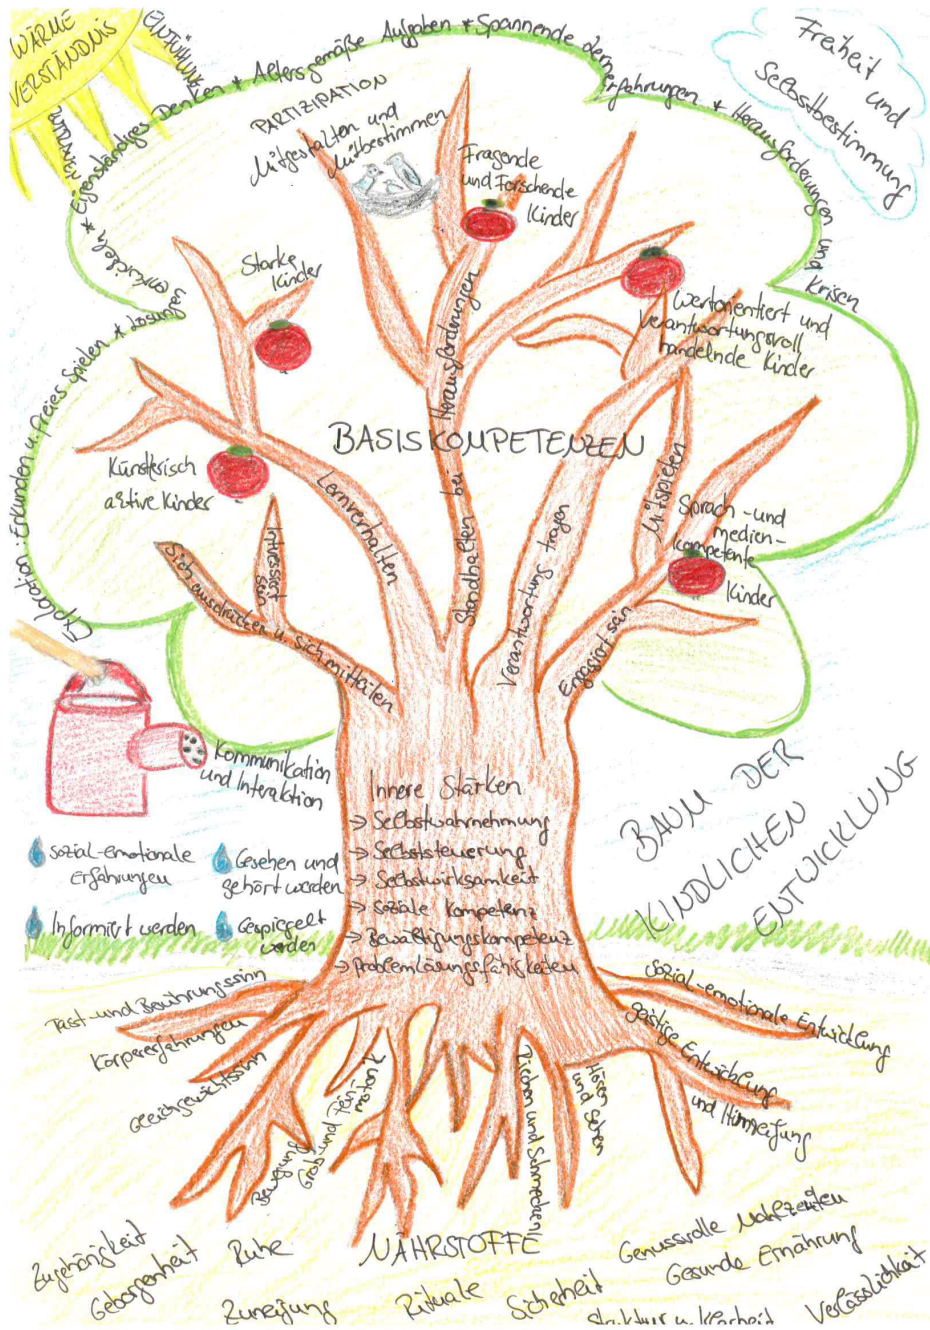 WÄRME
VERSTÄNDNIS
EINFÜHLUNG
Exploration: Erkunden u. freies Spielen * Lösungen entwickeln * Eigenständiges Denken * Altersgemäße Aufgaben * Spannende Lernerfahrungen * Herausforderungen und Krisen
Freiheit und
Selbstbestimmung
PARTIZIPATION
Mitgestalten und
Mitbestimmen
Fragende
und Forschende
Kinder
Starke
Kinder
Wertorientiert und
verantwortungsvoll
handelnde Kinder
BASISKOMPETENZEN
Künstlerisch
aktive Kinder
Sprach- und
medien-
kompetente
Kinder
Interessiert
sein
Sich ausdrücken u. sich mitteilen
Lernverhalten
Standhalten bei Herausforderungen
Verantwortung tragen
Mitspielen
Engagiert sein
Kommunikation
und Interaktion
sozial-emotionale
Erfahrungen
Gesehen und
gehört werden
Informiert werden
Gespiegelt
werden
Innere Stärken
→ Selbstwahrnehmung
→ Selbststeuerung
→ Selbstwirksamkeit
→ soziale Kompetenz
→ Bewältigungskompetenz
→ Problemlösungsfähigkeiten
BAUM DER
KINDLICHEN
ENTWICKLUNG
Tast- und Berührungssinn
Körpererfahrungen
Gleichgewichtssinn
Bewegung
Grob- und Fein-
motorik
Riechen und Schmecken
Hören
und Sehen
Sozial-emotionale Entwicklung
Geistige Entwicklung
und Hirnreifung
NÄHRSTOFFE
Zugehörigkeit
Geborgenheit
Ruhe
Zuneigung
Rituale
Sicherheit
Genussvolle Mahlzeiten
Gesunde Ernährung
Struktur u. Klarheit
Verlässlichkeit